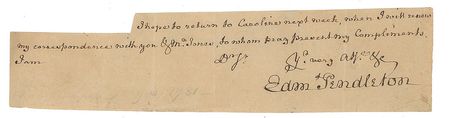 I hope to return to Caroline next week, when I will renew
my correspondence with you & Mr. Jones, to whom pray present my Complements.
I am Dr Sr Yr. very Afte. &c
Edmd. Pendleton